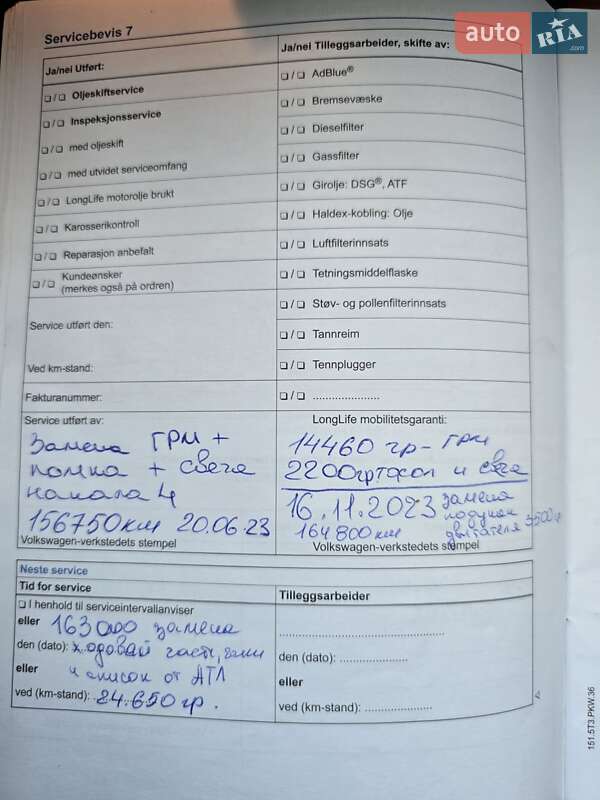 auto RIA .com
Servicebevis 7
Ja/nei Utført:
❏ / ❏ Oljeskiftservice
❏ / ❏ Inspeksjonsservice
❏ / ❏ med oljeskift
❏ / ❏ med utvidet serviceomfang
❏ / ❏ LongLife motorolje brukt
❏ / ❏ Karosserikontroll
❏ / ❏ Reparasjon anbefalt
❏ / ❏ Kundeønsker
(merkes også på ordren)
Service utført den:
Ved km-stand:
Fakturanummer:
Ja/nei Tilleggsarbeider, skifte av:
❏ / ❏ AdBlue®
❏ / ❏ Bremsevæske
❏ / ❏ Dieselfilter
❏ / ❏ Gassfilter
❏ / ❏ Girolje: DSG®, ATF
❏ / ❏ Haldex-kobling: Olje
❏ / ❏ Luftfilterinnsats
❏ / ❏ Tetningsmiddelflaske
❏ / ❏ Støv- og pollenfilterinnsats
❏ / ❏ Tannreim
❏ / ❏ Tennplugger
❏ / ❏ .....................
Service utført av:
Замена ГРМ +
помпа + свеча
накала 4
156750км 20.06.23
Volkswagen-verkstedets stempel
LongLife mobilitetsgaranti:
14460 гр- ГРМ
2200гр тосол и свеча
16.11.2023 замена
подушок
164800км двигателя 3500гр
Volkswagen-verkstedets stempel
Neste service
Tid for service
❏ I henhold til serviceintervallanviser
eller 163000 замена
den (dato): ходовай части,
eller и список от АТЛ
ved (km-stand): 24.650 гр.
Tilleggsarbeider
den (dato): .....................
eller
ved (km-stand): .....................
151.5T3.PKW.36